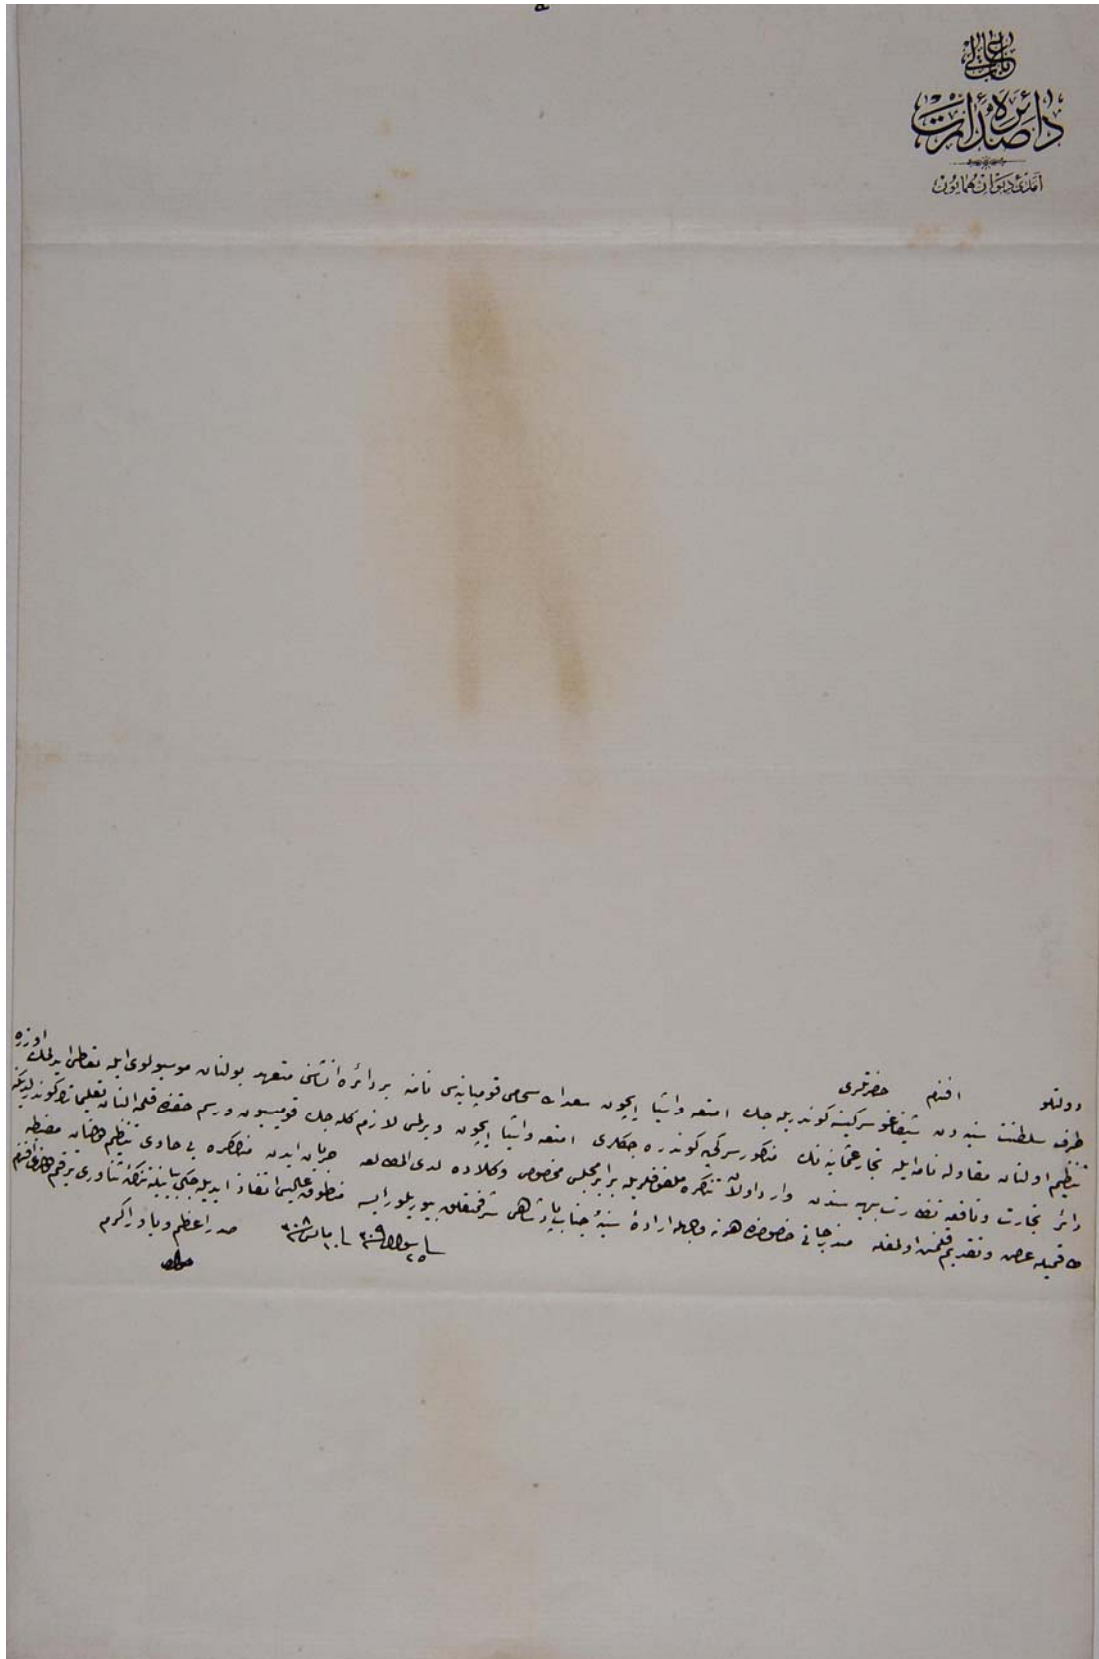 باب عالی
دائرهٔ صدارت
آمدی دیوان همایون
دولتلو افندم حضرتلری
طرف سلطنت سنیه دن شیقاغو سرکیسنه کوندریله جك امتعه واشیا ایچون سعد الله سهامی قومپانیه سی نامنه بر دائره انشاسنی متعهد بولنان موسیو لوی ایله تعاطی ایدلمك اوزره
تنظیم اولنان مقاوله نامه ایله تجار عثمانیه نك مذکور سرکی یه کوندره جکلری امتعه واشیا ایچون ویرلمسی لازم کله جك قومیسیون ورسم حقنده قلمه النان تعلیماتك کوندرلدیکنه
دائر تجارت ونافعه نظارت بهیه سندن وارد اولان تذکره ملفوفلریله برابر مجلس مخصوص وکلاده لدی المطالعه جریان ایدن مذاکره یی حاوی تنظیم قلنان مضبطه
عرض وتقدیم قلنمش اولمغله مندرجاتی حقنده هر نه وجهله ارادهٔ سنیهٔ جناب پادشاهی شرفمتعلق بیوریلور ایسه منطوق عالیسی انفاذ ایدیله جکی بیانیله تذکرهٔ ثناوری ترقیم قلندی افندم
فی ٢٥ شوال ٣٠٩ فی ١٠ مایس ٣٠٨
صدر اعظم ویاور اکرم
جواد